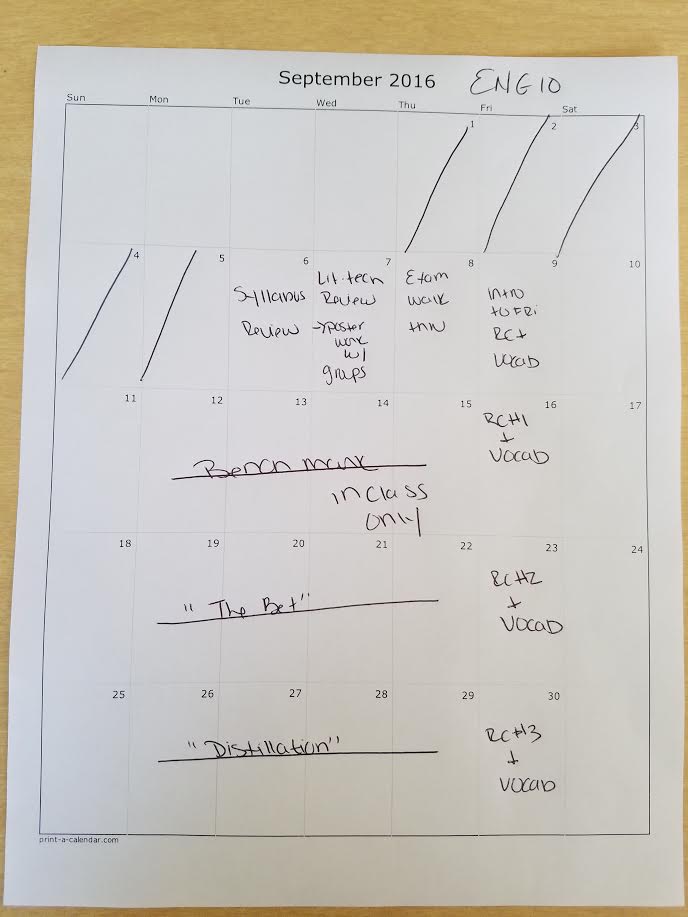 September 2016 ENG 10
Sun Mon Tue Wed Thu Fri Sat
1 2 3
4 5 6 7 8 9 10
Syllabus
Review
Lit. tech
Review
→poster
work
w/
groups
Exam
walk
thru
intro
to FRi
RC +
Vocab
11 12 13 14 15 16 17
Benchmark
in class
only
RC#1
+
Vocab
18 19 20 21 22 23 24
"The Bet"
RC#2
+
Vocab
25 26 27 28 29 30
"Distillation"
RC#3
+
Vocab
print-a-calendar.com